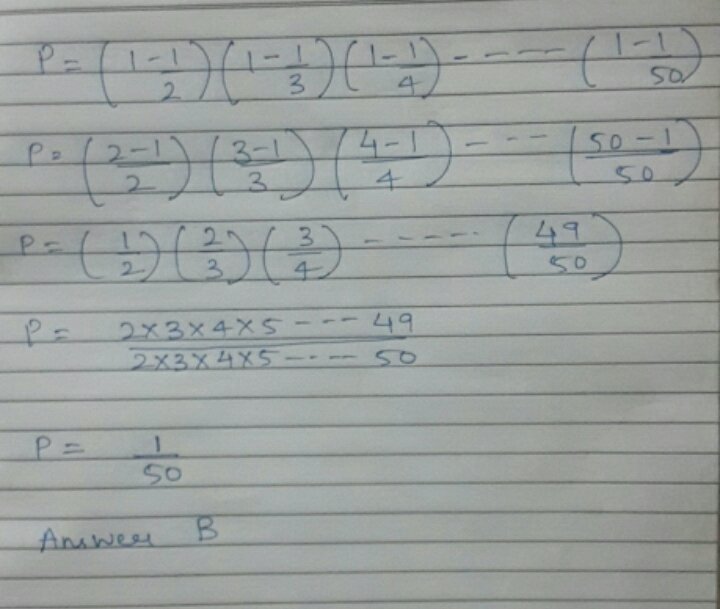 P = (1 - 1/2) (1 - 1/3) (1 - 1/4) - - - - - (1 - 1/50)
P = (2-1/2) (3-1/3) (4-1/4) - - - - (50-1/50)
P = (1/2) (2/3) (3/4) - - - - - (49/50)
P = 2×3×4×5 - - - - 49 / 2×3×4×5 - - - - 50
P = 1/50
Answer B